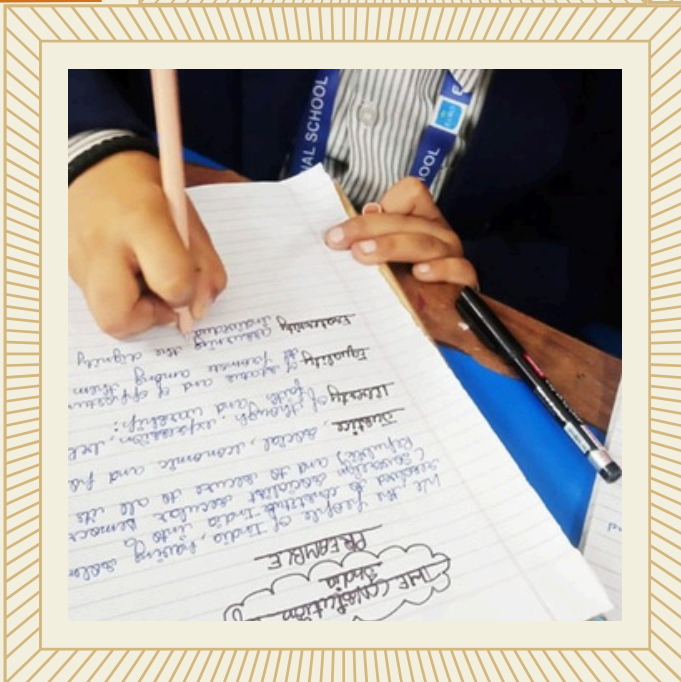 THE Constitution
India
PREAMBLE
We the people of India, having solem
resolved to constitute India into a
(sovereign socialist secular democr
Republic) and to secure to all its
Justice, social, economic and po
Liberty of though, expression, bel
faith and worship;
Equality of status and of oppurtun
among them
Fraternity assurining the dignity
individual
NAL SCHOOL
OOL